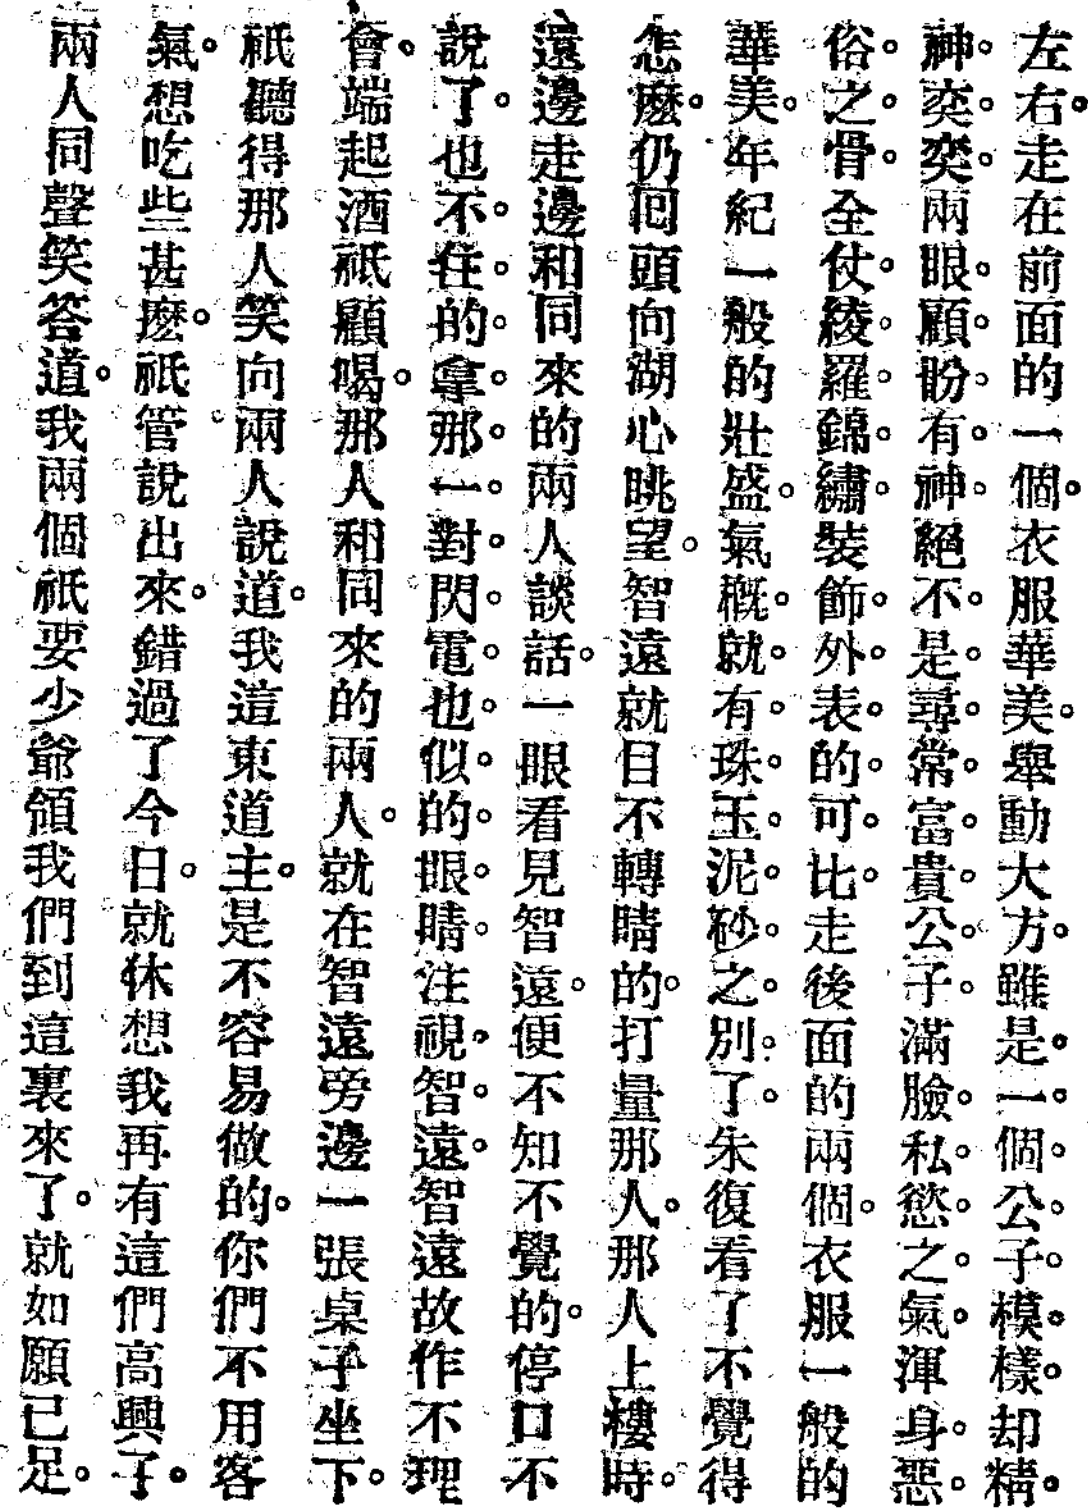 左右。走在前面的一個。衣服華美。舉動大方。雖是。一。個。公。子。模。樣。却精。
神。奕。奕。兩眼。顧。盼。有。神。絕不。是。尋。常。富。貴。公。子。滿臉。私。慾。之。氣。渾身。惡。
俗。之。骨。全仗。綾。羅。錦。繡。裝飾。外。表。的。可。比。走後面的兩個。衣服一般的
華美。年紀一般的壯盛。氣概。就。有。珠。玉。泥。砂。之。別。了。朱復看了不覺得
怎麽。仍囘頭向湖心眺望。智遠就目不轉睛的。打量那人。那人上樓時。
邉邊走邊和同來的兩人談話。一眼看見智遠。便不知不覺的。停口不
說了。也不。住。的。拿。那。一。對。閃。電。也。似。的。眼。睛。注視。智。遠。智遠故作不理
會。端起酒祇顧喝。那人和同來的兩人。就在智遠旁邊一張桌子坐下。
祇聽得那人笑向兩人說道。我這東道主。是不容易做的。你們不用客
氣。想吃些甚麽。祇管說出來。錯過了今日。就休想我再有這們高興了。
兩人同聲笑答道。我兩個祇要少爺領我們到這裏來了。就如願已足。